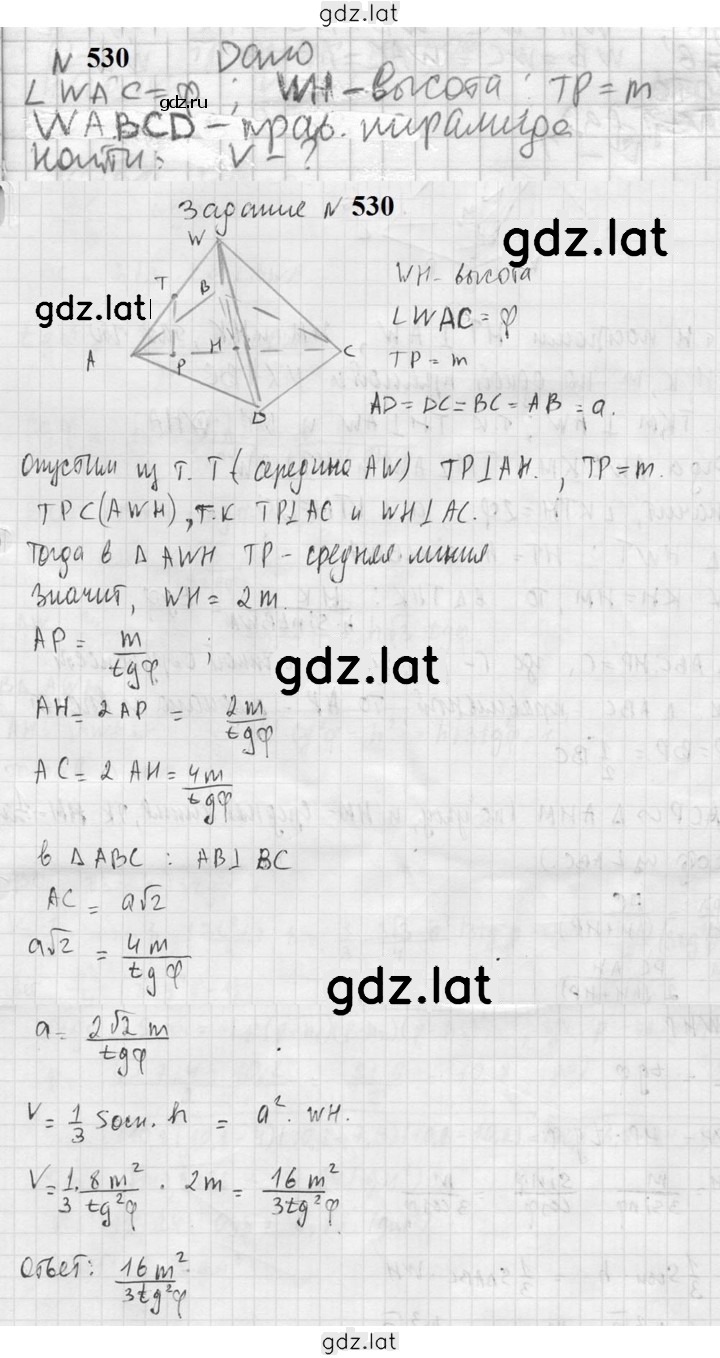 gdz.lat
N 530 Дано
∠WAC=φ; WH-высота; TP=m
gdz.ru
WABCD-прав. пирамида
Найти: V-?
Задание N 530
gdz.lat
W
T
B
gdz.lat
A
P
H
C
D
WH- высота
∠WAC=φ
TP=m
AD=DC=BC=AB=a.
Опустим из т. T (середина AW) TP⊥AH., TP=m.
TPC(AWH), т.к TP⊥AC и WH⊥AC.
Тогда в Δ AWH TP- средняя линия
Значит, WH= 2m.
AP= m/tgφ ;
gdz.lat
AH=2AP = 2m/tgφ
AC= 2 AH= 4m/tgφ
в ΔABC : AB⊥BC
AC = a√2
a√2 = 4m/tgφ
gdz.lat
a= 2√2 m/tgφ
V= 1/3 Sосн. h = a². WH.
V= 1/3 . 8m²/tg²φ . 2m= 16m²/3tg²φ
Ответ: 16m²/3tg²φ
gdz.lat